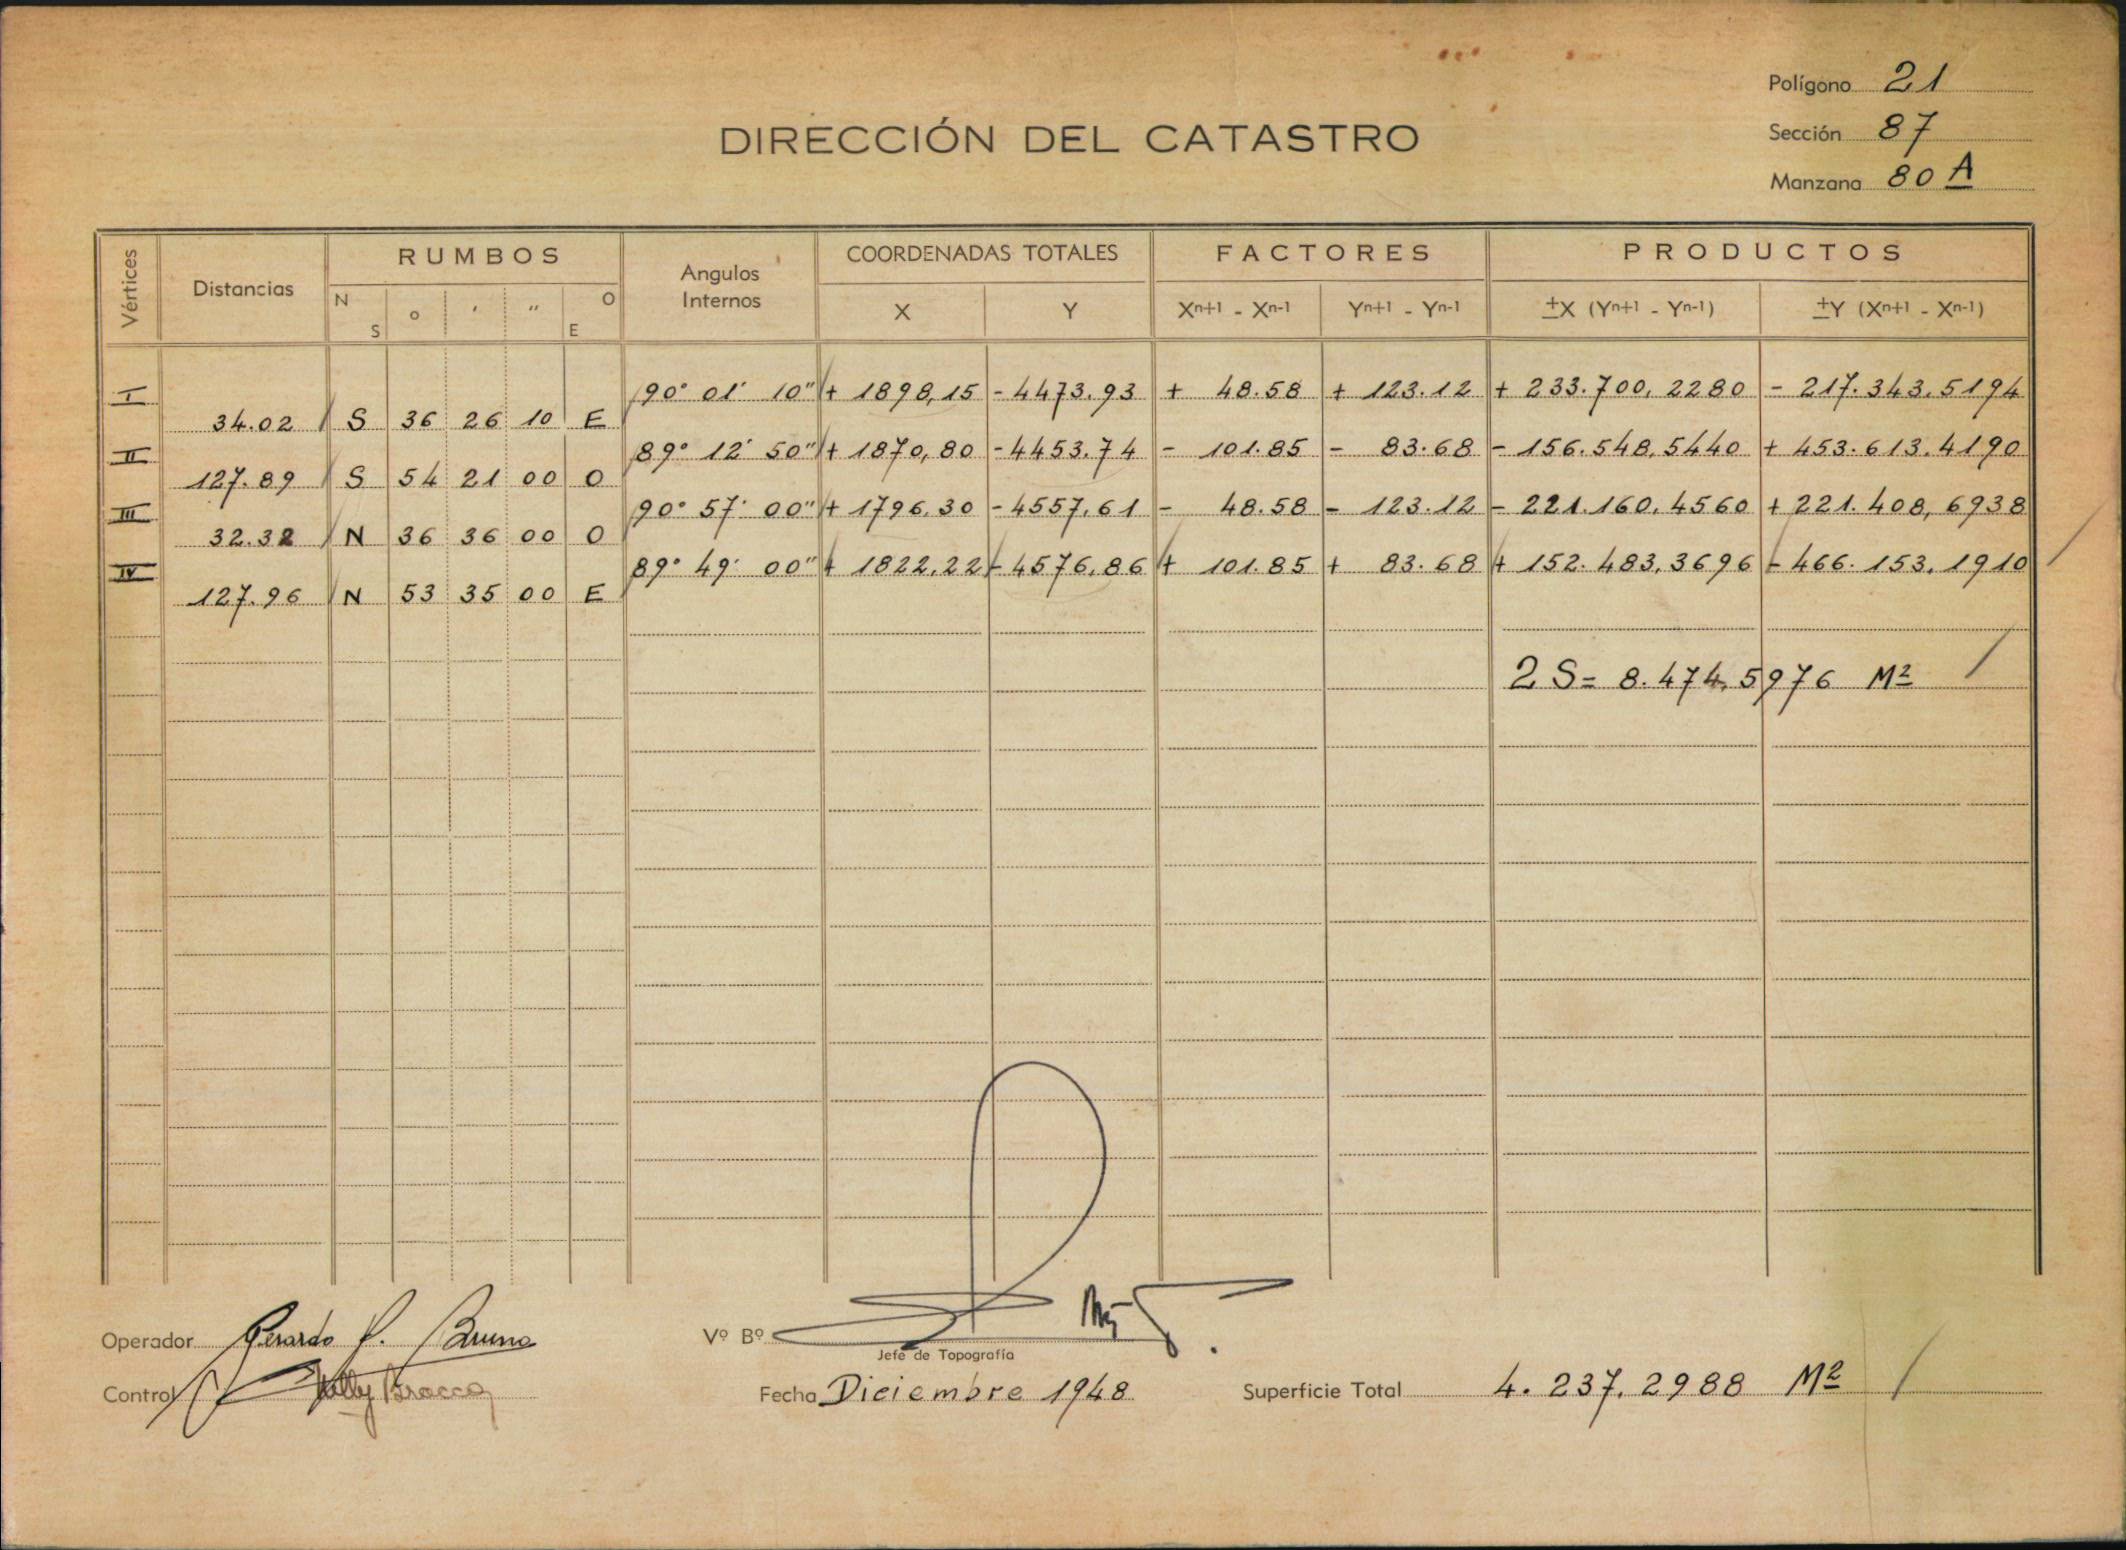 Polígono 21
DIRECCIÓN DEL CATASTRO
Sección 87
Manzana 80 A
Vértices Distancias RUMBOS Angulos Internos COORDENADAS TOTALES FACTORES PRODUCTOS
N S o ' " O E X Y Xn+1 - Xn-1 Yn+1 - Yn-1 ±X (Yn+1 - Yn-1) ±Y (Xn+1 - Xn-1)
I 90° 01' 10" + 1898,15 - 4473.93 + 48.58 + 123.12 + 233.700,2280 - 217.343.5194
34.02 S 36 26 10 E
II 89° 12' 50" + 1870,80 - 4453.74 - 101.85 - 83.68 - 156.548,5440 + 453.613.4190
127.89 S 54 21 00 O
III 90° 57' 00" + 1796.30 - 4557,61 - 48.58 - 123.12 - 221.160,4560 + 221.408,6938
32.32 N 36 36 00 O
IV 89° 49' 00" + 1822,22 - 4576,86 + 101.85 + 83.68 + 152.483,3696 - 466.153,1910
127.96 N 53 35 00 E
2 S = 8.474,5976 M2
Operador Gerardo P. Bruno
Vº Bº
Jefe de Topografía
Control Nelly Bracco
Fecha Diciembre 1948
Superficie Total 4.237,2988 M2